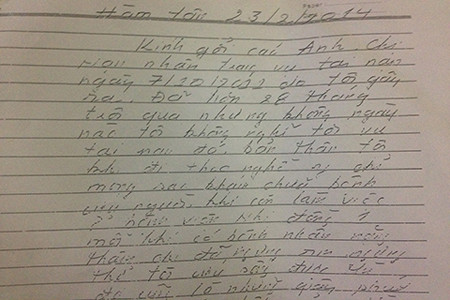 Hàm tân 23/2/2014
Kính gởi các Anh, Chị
nạn nhân trong vụ tai nạn
ngày 7/10/2012 do tôi gây
ra. Đã hơn 28 tháng
trôi qua nhưng không ngày
nào tôi không nghĩ tới vụ
tai nạn đó bản thân tôi
khi đi học nghề y chỉ
mong sao khám chữa bệnh
cứu người khi còn làm việc
ở bệnh viện khi đứng
một khi có bệnh nhân nặng
thậm chí đã ngưng tim ngưng
thở tôi